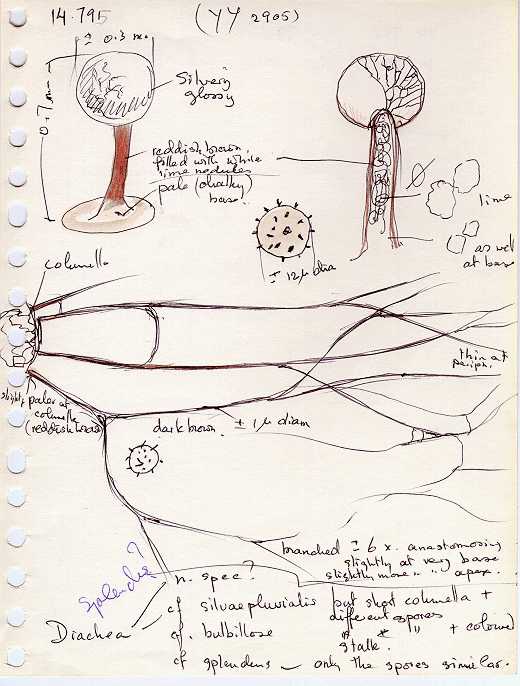 14.795 (YY 2905)
± 0.3 m.
0.7 m
Silvery
glossy
reddish brown
filled with white
lime nodules
pale (chalky)
base.
lime
as well
at base
± 12 µ dia
columella
thin at
periph.
slightly paler at
columella
(reddish brown)
dark brown ± 1 µ diam
branched ± 6 x. anastomosing
slightly at very base
slightly more " " apex.
splendens?
n. spec?
Diachea
cf silvaepluvialis but short columella +
different spores
cf. bulbillosa " " " + coloured
stalk.
cf splendens – only the spores similar.